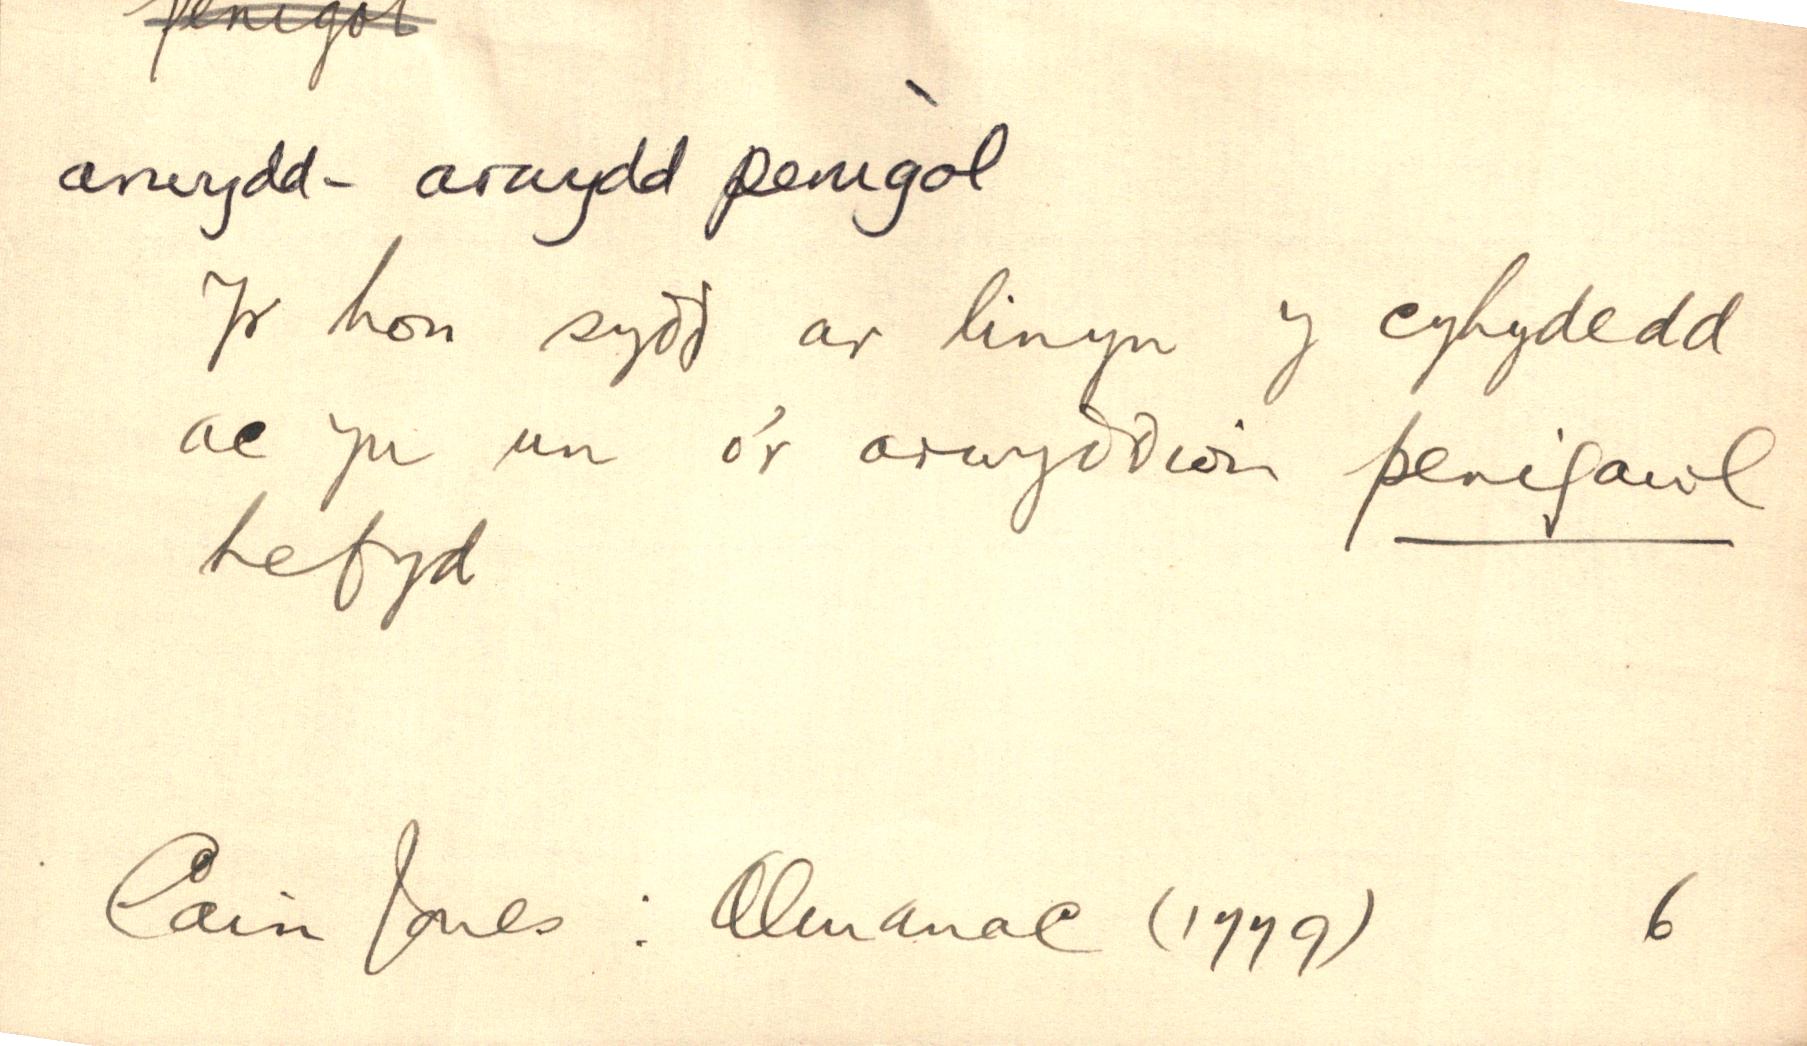 penigol
arwydd- arwydd penigol
Yr hon sydd ar linyn y cyhydedd
ac yn un o'r arwyddion penigawl
hefyd
Cain Jones : Almanac (1779) 6